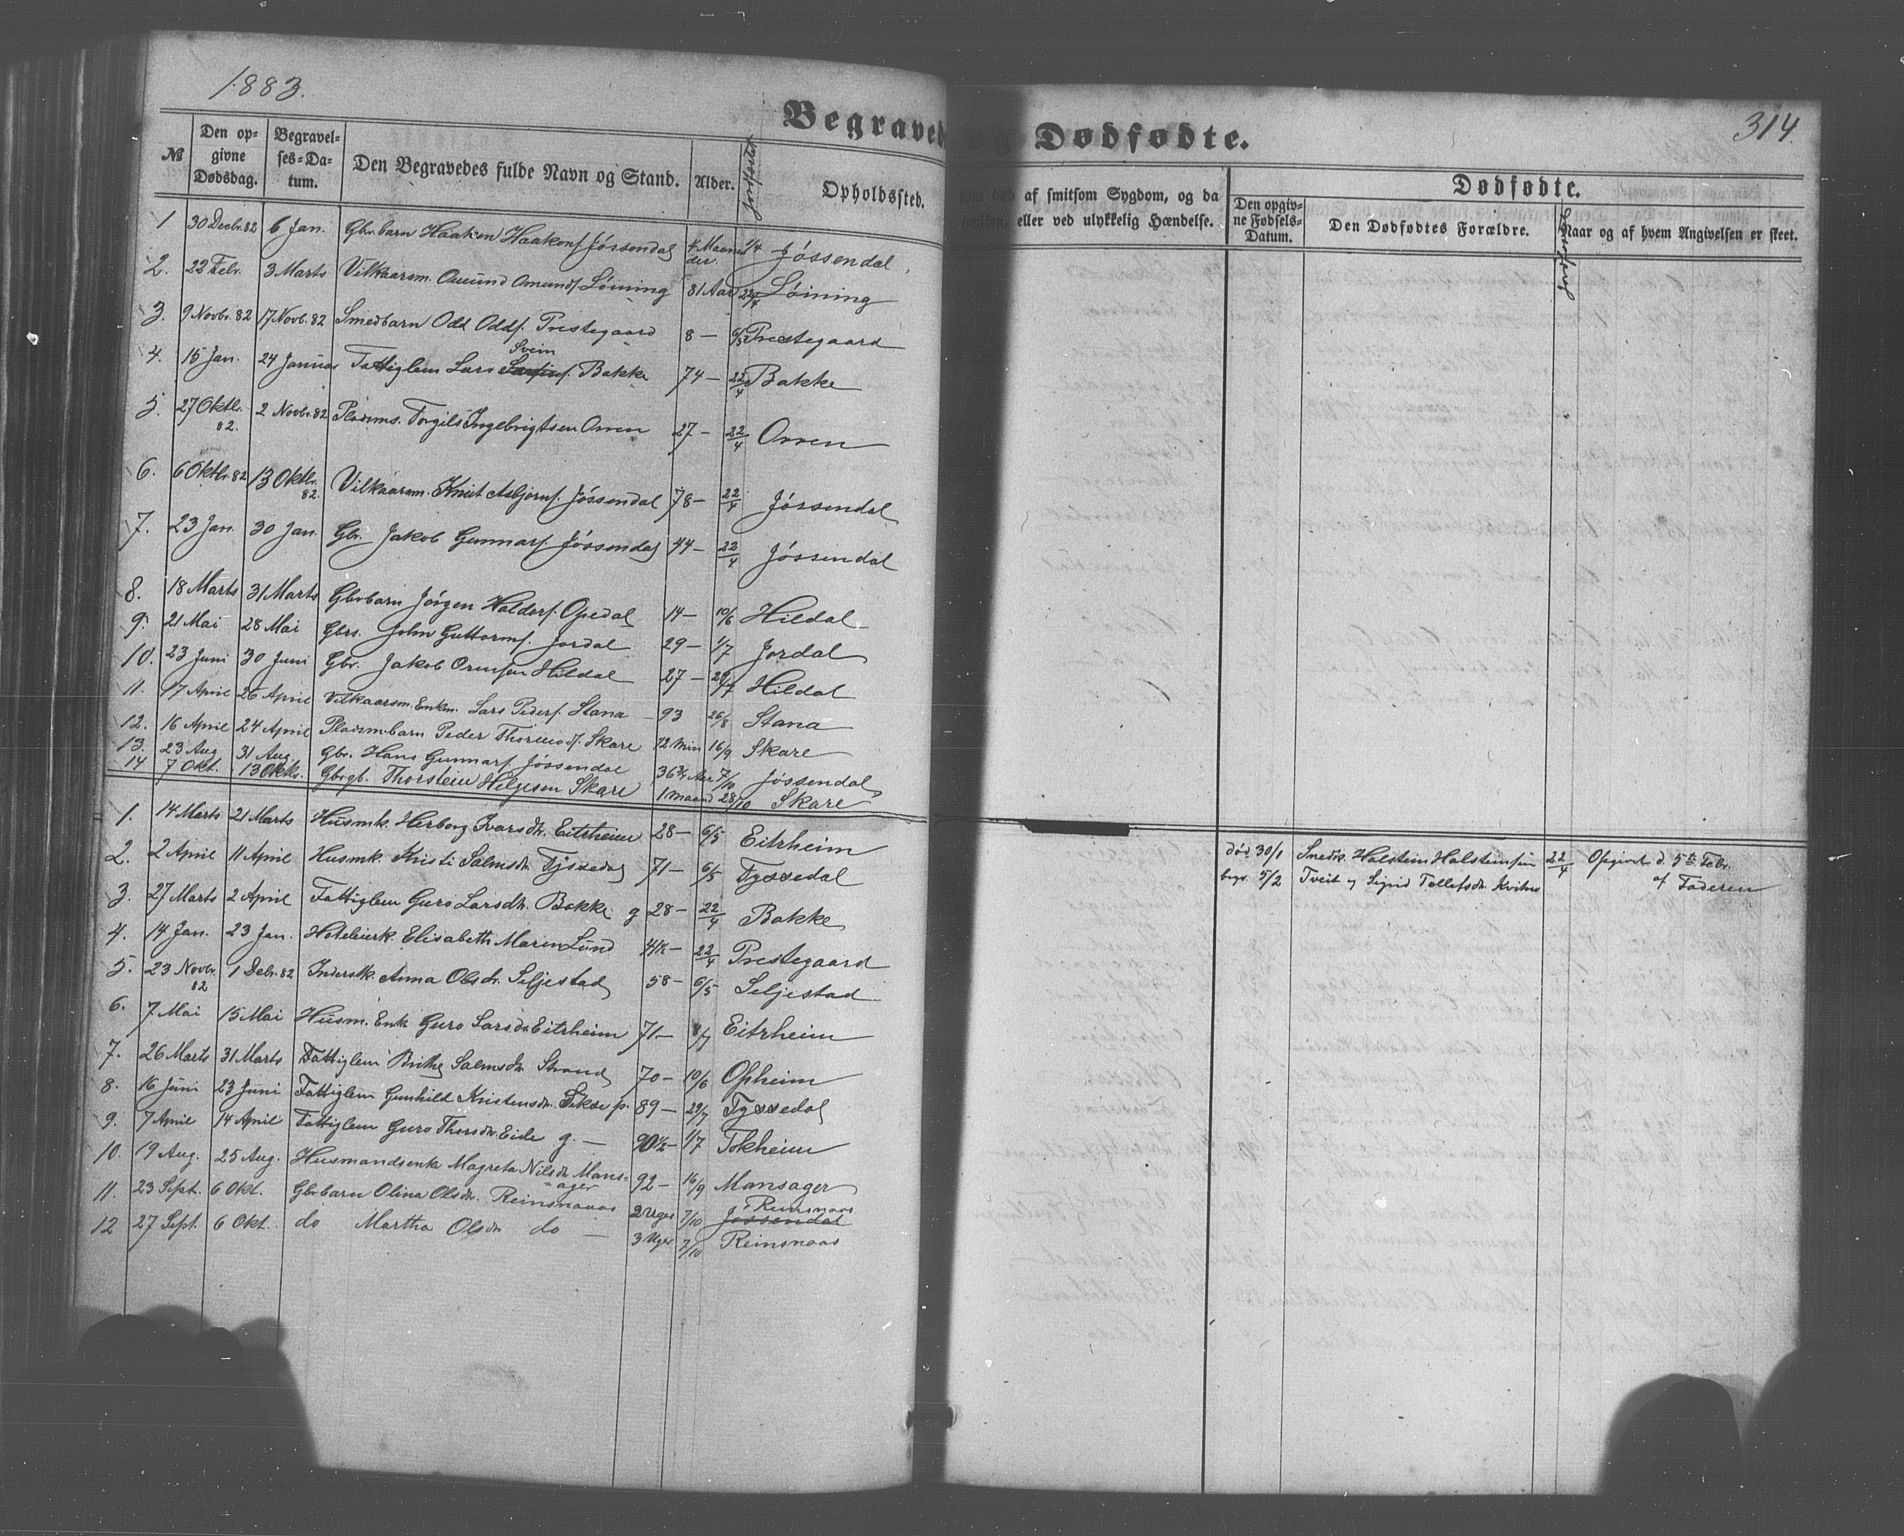 1883.
314.
Begravede Dødfødte.
№ Den op- Begravel- Den Begravedes fulde Navn og Stand. Alder. Jordfæstet Opholdssted.
givne ses-Da-
Dødsdag. tum.
af smitsom Sygdom, og da
eller ved ulykkelig Hændelse.
Dødfødte.
Den opgiv- Den Dødfødtes Forældre. Naar og af hvem Angivelsen er skeet.
ne Fødsels-
Datum.
1 30 Decbr. 82 6 Jan. Gbr.barn Haaken Haakens. Jøssendal 4 Maane- 1/4 Jøssendal
der.
2. 22 Febr. 3 Marts Vilkaarsm. Omund Omunds. Løining 81 Aar 22/4 Løining
3. 9 Novbr. 82 17 Novb. 82 Smedbarn Odd Odds. Prestegaard 8 — 6/5 Prestegaard
4. 15 Jan. 24 Januar Fattiglem Lars Svein s. Bakke 74 — 22/4 Bakke
5. 27 Oktbr. 82. 2 Novbr. 82 Pladsms. Torgils Ingebrigtsen Orren 27 — 22/4 Orren
6. 6 Oktbr. 82 13 Oktbr. 82. Vilkaarsm. Knut Asbjørns. Jøssendal 78 — 22/4 Jøssendal
7. 23 Jan. 30 Jan. Gbr. Jakob Gunnars. Jøssendal 44 — 22/4 Jøssendal
8. 18 Marts 31 Marts Gbrbarn Jørgen Haldors. Opedal 14 — 10/6 Hildal
9. 21 Mai 28 Mai Gbrs. John Guttorms. Jordal 29 — 1/7 Jordal
10. 23 Juni 30 Juni Gbr. Jakob Ormsen Hildal 27 — 29/7 Hildal
11. 17 April 26 April Vilkaarsm. Enkm. Lars Peders. Stana — 93 26/8 Stana
12. 16 April 24 April Pladsmbarn Peder Thormods. Skare 12 Min 16/9 Skare
13. 23 Aug 31 Aug. Gbr. Hans Gunnars. Jøssendal 36 3/4 Aar 7/10 Jøssendal
14 7 Okt. 13 Oktb. Gbrgb. Thorstein Helgesen Skare 1 Maaned 28/10 Skare
1. 14 Marts 21 Marts Husmk. Herborg Ivarsdtr. Eitrheim 28 — 6/5 Eitrheim
2. 2 April 11 April Husmk. Kristi Salmsdtr. Tyssedal 71 — 6/5 Tyssedal
3. 27 Marts 2 April Fattiglem Guro Larsdtr. Bakke g 28 — 22/4 Bakke
4. 14 Jan. 23 Jan. Hoteleierk. Elisabeth Marie Lund 22/4 Prestegaard
5. 23 Novbr. 82 1 Debr. 82 Inderstk. Anna Olsdr. Seljestad 58 — 6/5 Seljestad
6. 7 Mai 15 Mai Husm. Enk. Guro Larsdtr Eitrheim 71 — 8/7 Eitrheim
7. 26 Marts 31 Marts Fattiglem Brithe Salmsdtr. Strand 70 — 10/6 Opheim
8. 16 Juni 23 Juni Fattiglem Gunhild Kristensdtr. 89 — 29/7 Tyssedal
9. 7 April 14 April Fattiglem Guro Thorsdtr Eide g. — 90 1/2 — 1/7 Tokheim
10. 19 Aug. 25 Aug. Husmandsenk Magreta Nilsdtr. Mans- 92 — 16/9 Mansager
ager
11. 23 Sept. 6 Okt. Gbrbarn Olina Olsdtr. Reinsnaaas 2 Uger 7/10 Jøssendal Reinsnaas
12 27 Sept. 6 Okt. do Martha Olsdtr do — 3 Uger 7/10 Reinsnaas
død 30/1 Smeds. Holstein Holsteinsen 22/4 Opgivet d. 5te Febr.
begr. 5/2 Tveit og Sigrid Tollefsdtr. af Faderen